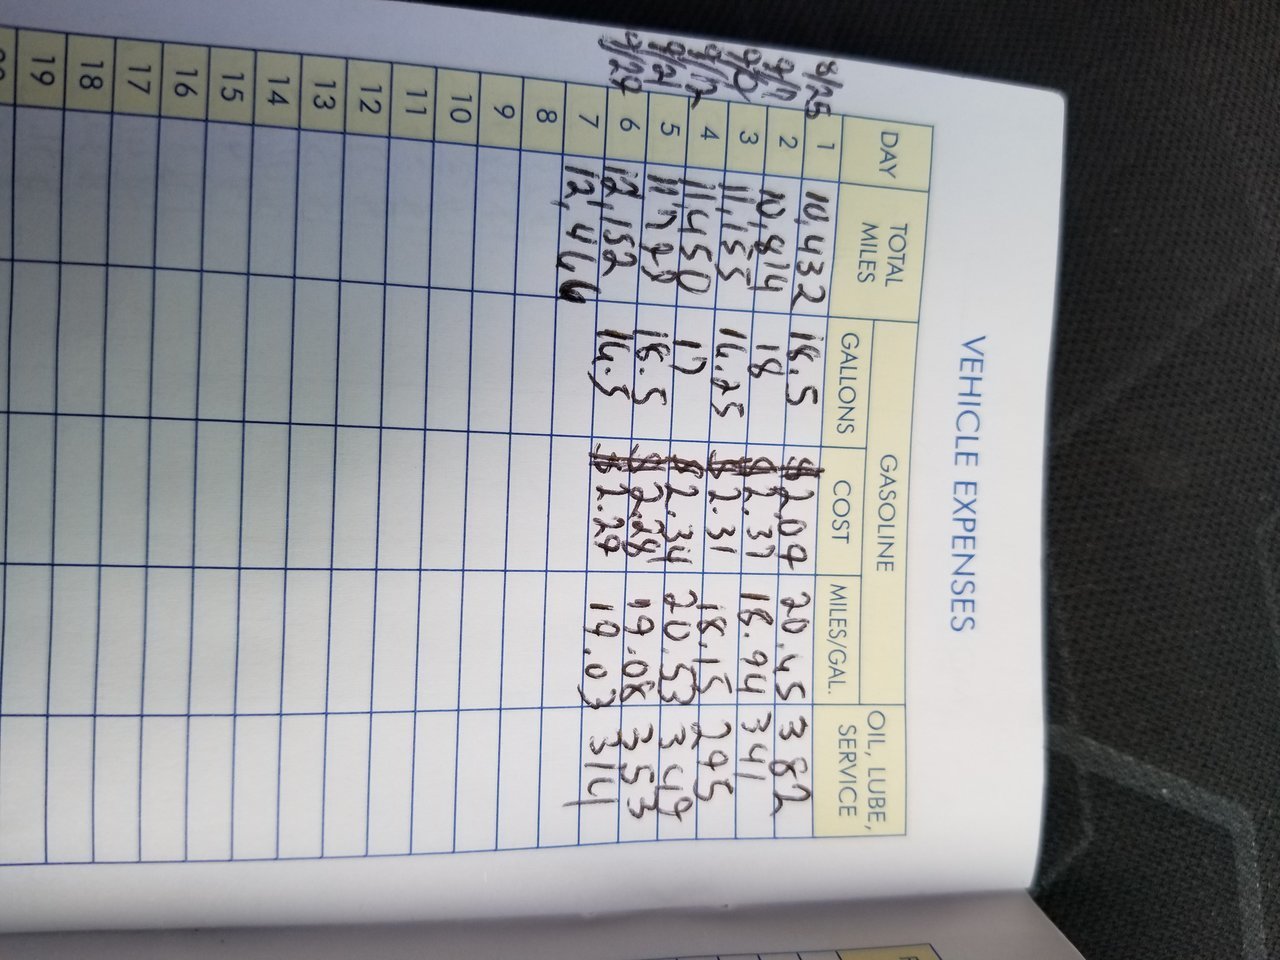 VEHICLE EXPENSES
DAY TOTAL MILES GASOLINE OIL, LUBE, SERVICE
GALLONS COST MILES/GAL.
8/25 1 10,432 18.5 $2.09 20.45 382
2 10,814 18 $2.37 18.94 341
3 11,155 16.25 $2.31 18.15 295
4 11,450 17 $2.34 20.53 349
9/21 5 11,799 18.5 $2.28 19.08 353
9/29 6 12,152 16.5 $2.29 19.03 314
7 12,466
8
9
10
11
12
13
14
15
16
17
18
19